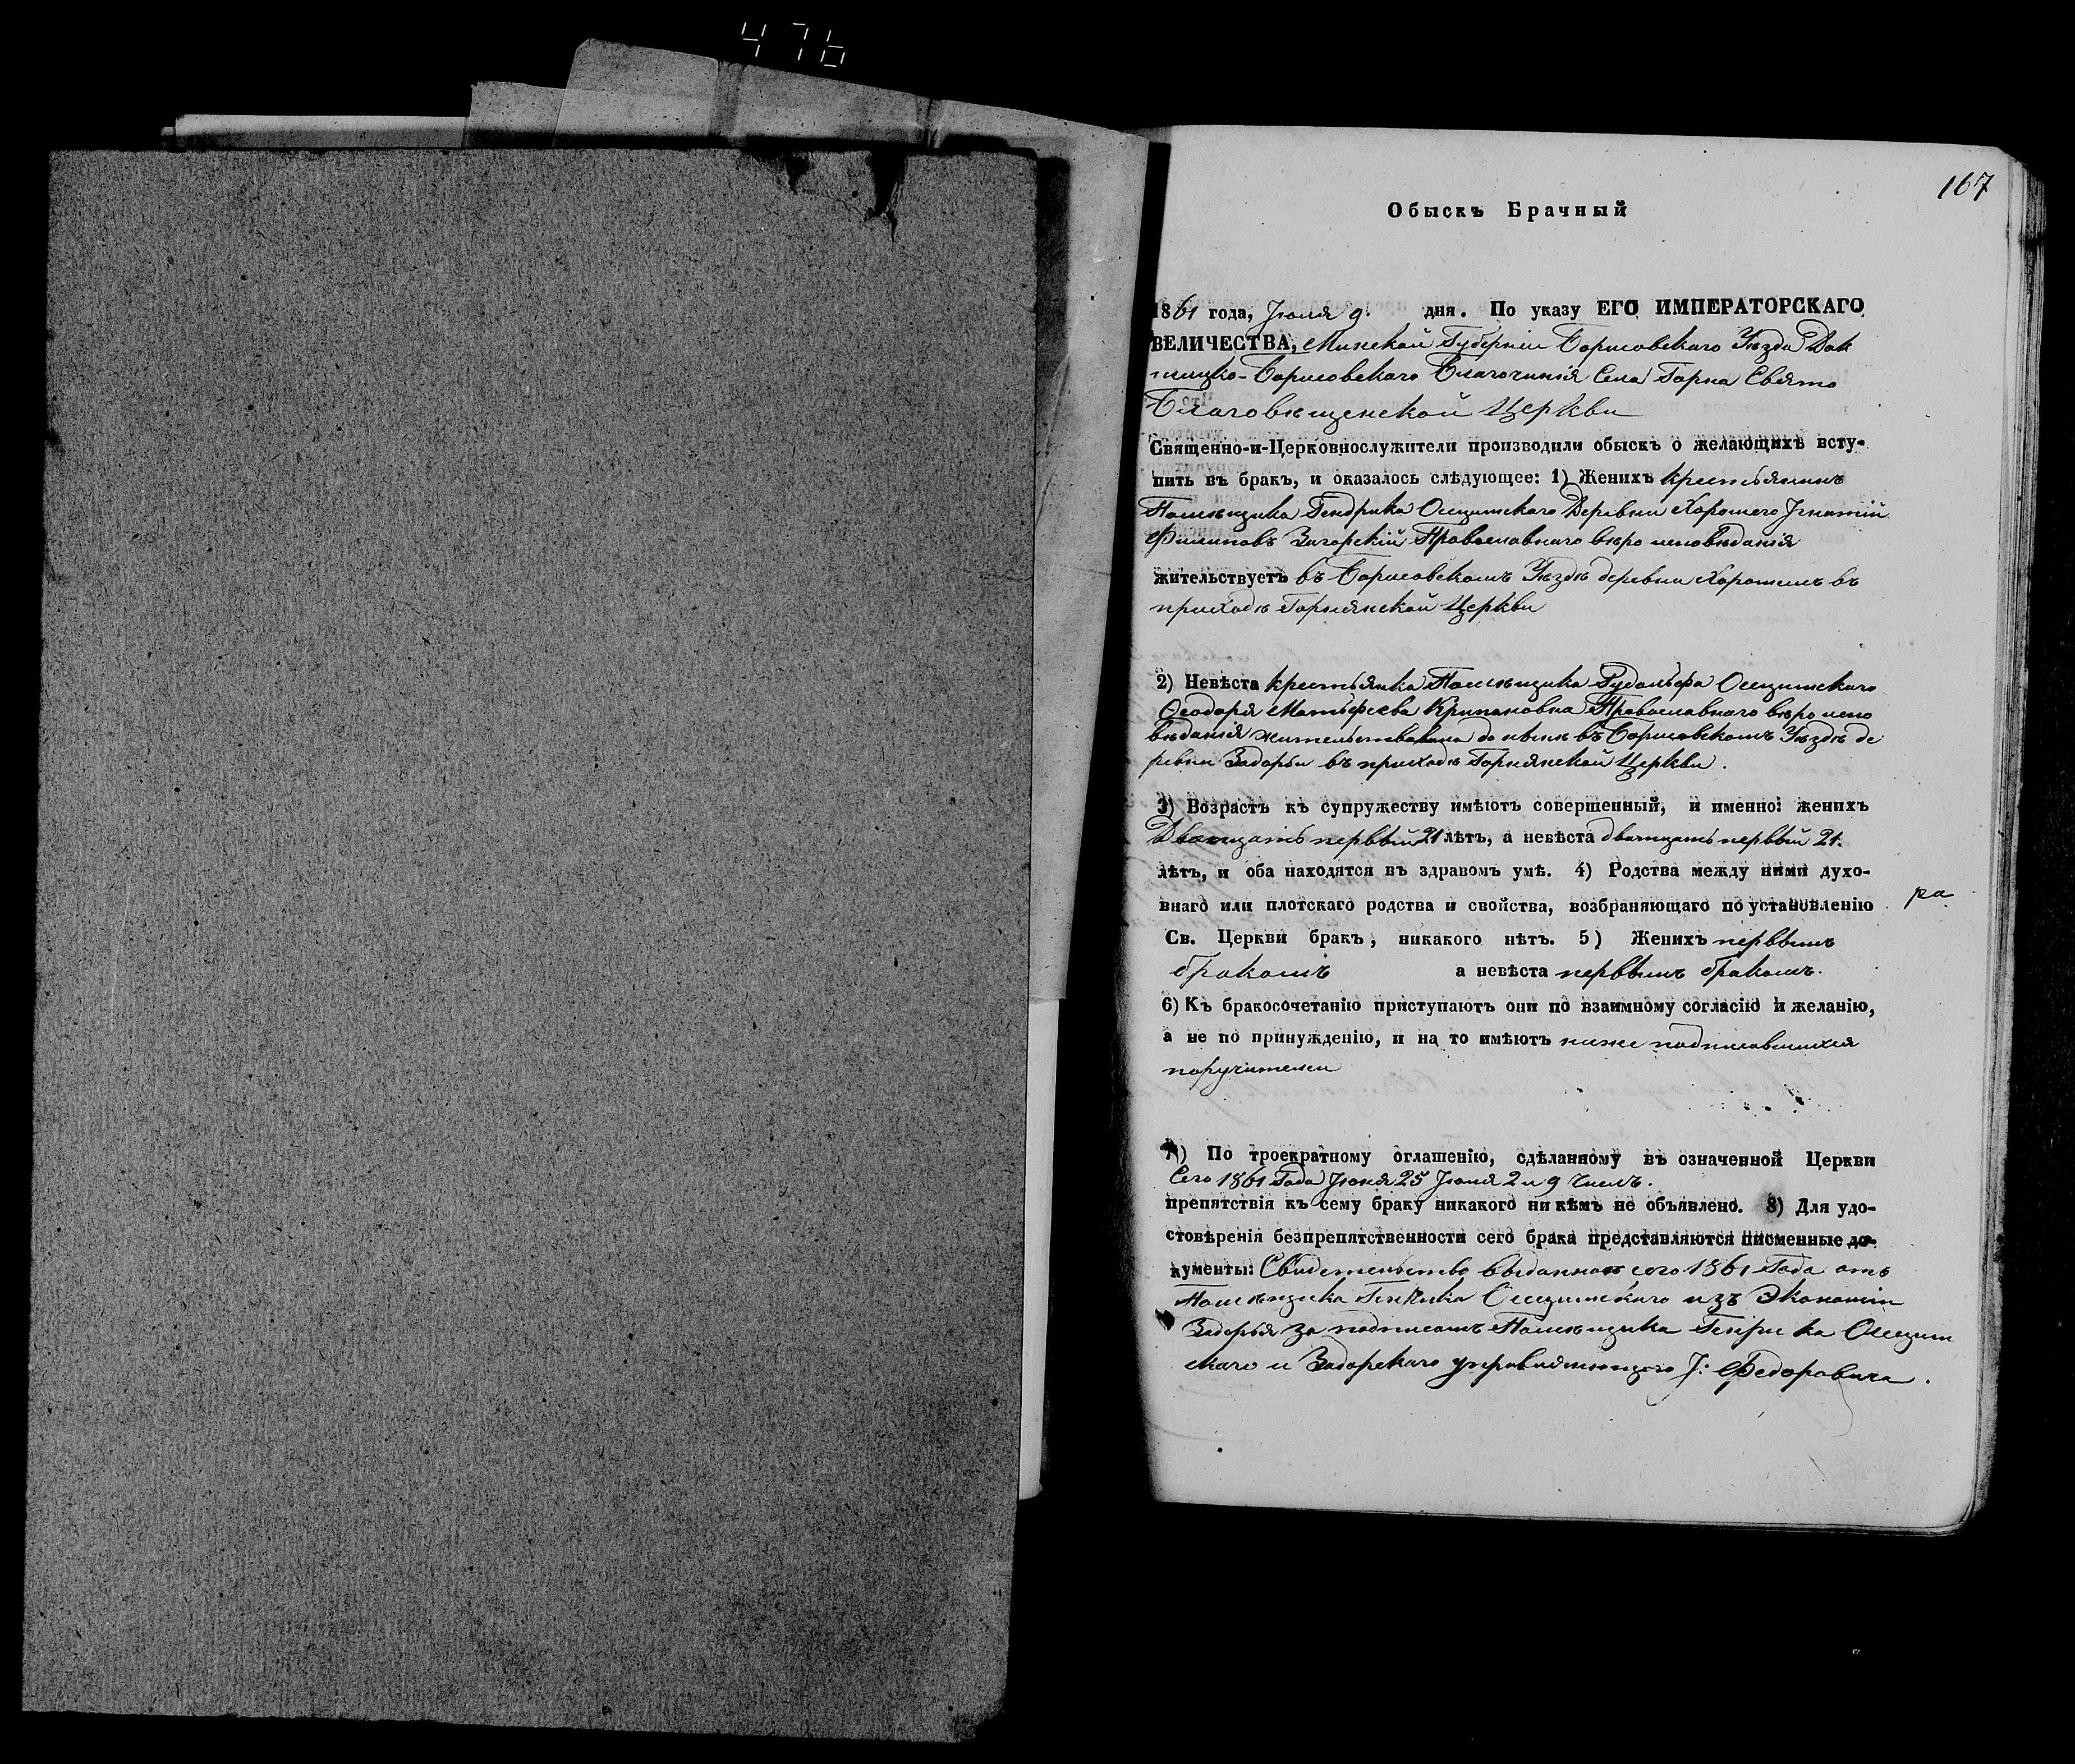 476
167
Обыскъ Брачный
1861 года, Іюля 9. дня. По указу ЕГО ИМПЕРАТОРСКАГО
ВЕЛИЧЕСТВА, Минской Губерніи Борисовскаго Уѣзда Док
шицко-Борисовскаго Благочинія Села Горна Свято
Благовѣщенской Церкви
Священно-и-Церковнослужители производили обыскъ о желающихъ всту-
пить въ бракъ, и оказалось слѣдующее: 1) Женихъ крестьянинъ
Помѣщика Гендрика Слизинскаго Деревни Хорошего Игнатій
Филиповъ Загорскій Православнаго вѣро исповѣданія
жительствуетъ въ Борисовскомъ Уѣздѣ деревни Хорошемъ въ
приходѣ Горнянской Церкви
2) Невѣста крестьянка Помѣщика Рудольфа
Ѳеодора Матѳеева Православнаго вѣро испо
вѣданія жительствовала до нынѣ въ Борисовскомъ Уѣздѣ де
ревни Задорьи въ приходѣ Горнянской Церкви.
3) Возрастъ къ супружеству имѣютъ совершенный, и именно: женихъ
Двадцать первый 21 лѣтъ, а невѣста двадцать первый 21.
лѣтъ, и оба находятся въ здравомъ умѣ. 4) Родства между ними духо-
внаго или плотскаго родства и свойства, возбраняющаго по установленію
ра
Св. Церкви бракъ, никакого нѣтъ. 5) Женихъ первымъ
бракомъ а невѣста первымъ бракомъ.
6) Къ бракосочетанію приступаютъ они по взаимному согласію и желанію,
а не по принужденію, и на то имѣютъ ниже подписавшихся
поручители
7) По троекратному оглашенію, сдѣланному въ означенной Церкви
Сего 1861 Года Іюня 25 Іюля 2 и 9 Числъ.
препятствія къ сему браку никакого ни кѣмъ не объявлено. 8) Для удо-
стовѣренія безпрепятственности сего брака представляются писменные до-
кументы: Свидетельство выданное сего 1861 Года отъ
Помѣщика изъ Экономіи
Задорья за подписомъ Помѣщика Генрика
скаго и Задорскаго управляющаго І: Федоровича.